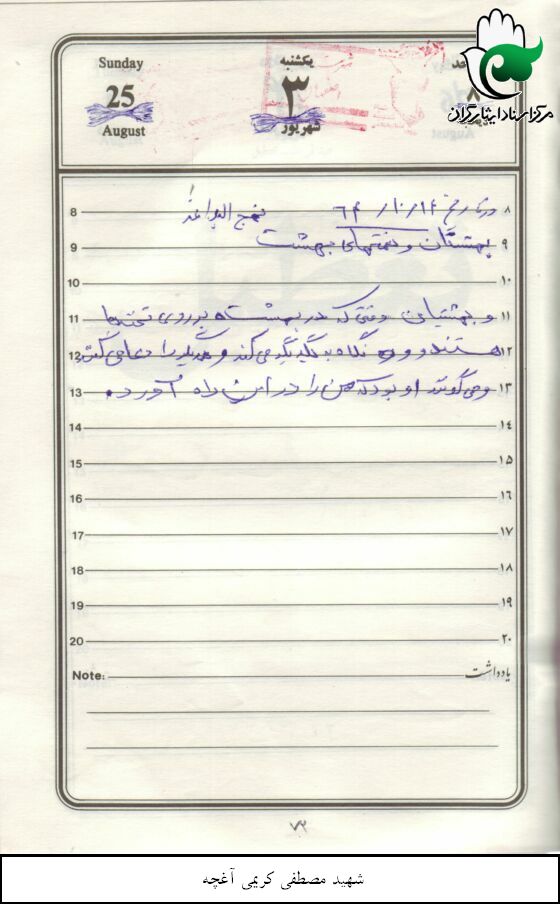 مرکز اسناد ایثارگران
Sunday
25
August
یکشنبه
۳
شهریور
8 در تاریخ ۶۴/۱۰/۱۴ نهج البلاغه ۸
9 بهشتیان و نعمتهای بهشت ۹
10 ۱۰
11 و بهشتیان وقتی که در بهشت بر روی تختها ۱۱
12 هستند و نگاه به یکدیگر می کند و همدیگر را دعا می کنند ۱۲
13 و می گویند او بود که من را در این راه آورد. ۱۳
14 ۱۴
15 ۱۵
16 ۱۶
17 ۱۷
18 ۱۸
19 ۱۹
20 ۲۰
Note: یادداشت
۷۲
شهید مصطفی کریمی آغچه